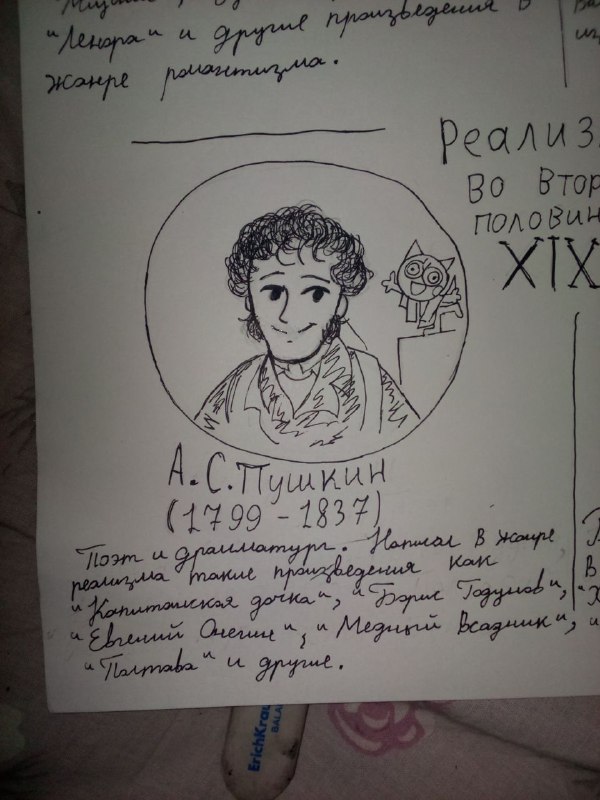 "Ленора" и другие произведения в
жанре романтизма.
Реализ
во втор
половин
XIX
А.С.Пушкин
(1799-1837)
Поэт и драмматург. Написал в жанре
реализма такие произведения как
"Капитанская дочка", "Борис Годунов",
"Евгений Онегин", "Медный Всадник",
"Полтава" и другие.
ErichKrau
BALA